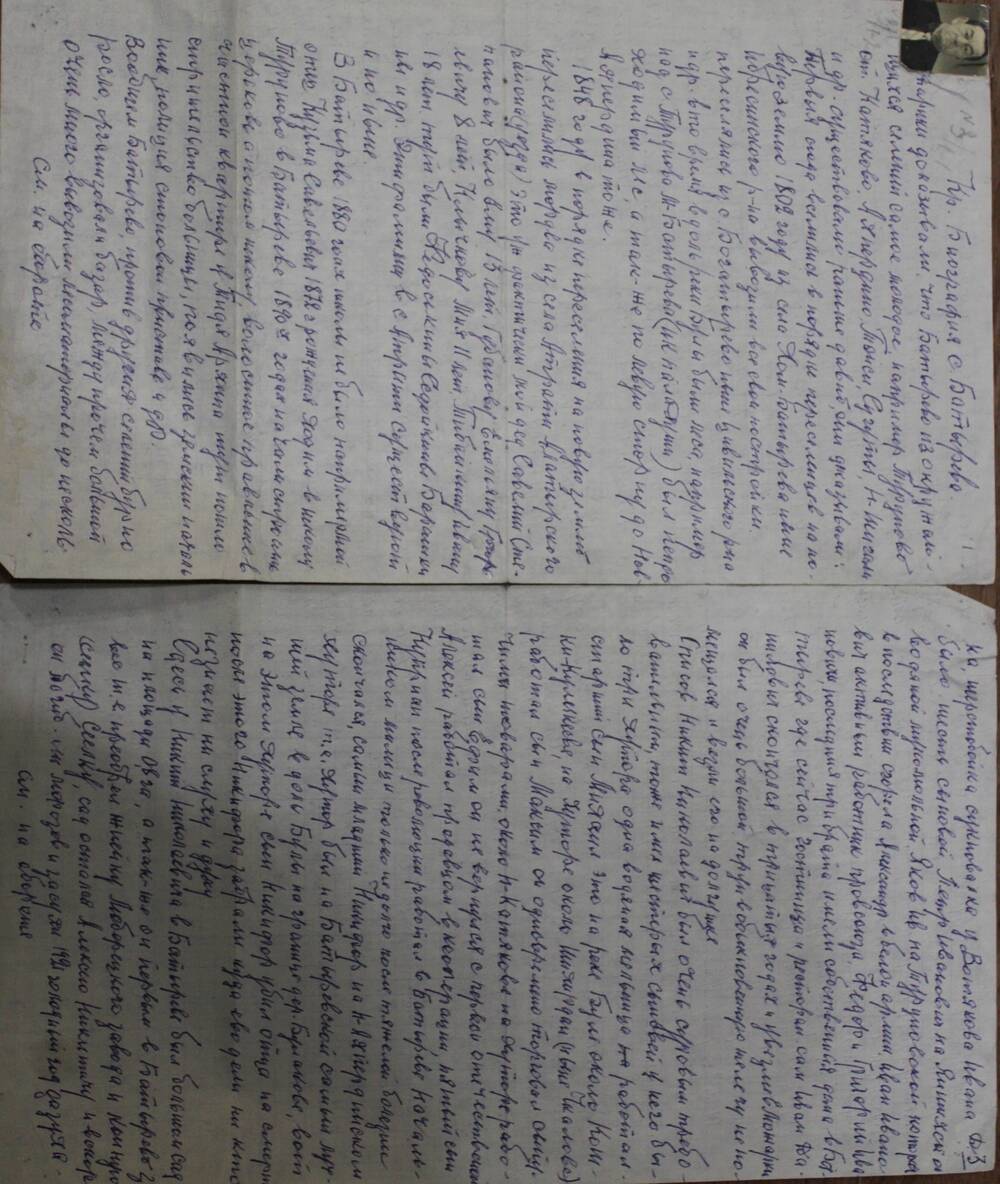 №3
1
Кр. Биография с. Батырева.
старики доказывали, что Батырево из окружаю-
щихся селений самое молодое, например Туруново
от. Катяково, Ахпердино, Тойси, Сугуты, Н-Шигали
и др. существовали раньше давно, они доказывали:
Первыя сюда вселились в порядке переселенцев на но-
вую землю 1802 году из села Хом-Батырева ныне
Ибресинского р-на вывозили все свои постройки.
переселялись из с. Богатырево ныне Цивильского р-на
и др. в то время вдоль реки Булы были леса, например
над с. Турунова М-Батырева был непро
ходимый лес, а так-же по левую сторну до Нов-
Ахпердина тоже.
1848 году в порядке переселения на новую землю
переселились мордва из села Атрати Алатырского
района (уезда) это уж фактически мой дед Савелий Сте-
панович было ему 13 лет, Губанову Емельяну Григорь
евичу 8 лет, Клычкову Мих 11 лет, Тибайкину Ивану
18 лет тут были Федоськины Седойкины Барашки
ны и др. Эти фамилии в с Атрати существуют
и по ныне.
В Батыреве 1880 годах школы не было например мой
отец Кузьма Савельевич 1872 г рождения ходил в школу
Туруново в Батыреве 1890х годах начали строить
церковь а потом школу, волостное правление в
частной квартире у Тидя Архипа тут пошло
строительство больницы, появились земский началь
ник, полиция становой пристав и др.
Вообщем Батырево, против других селений бурно
росло, организовали базар, между прочем большой
очень много вывозили лесоматериалы до несколь-
см. на обороте
3
ка, шерстобойка сукновалка у Вотякова Ивана
было шесть сыновей Петр Иванович на
водяной мукомольной, Яков Ив. на Туруновской, которая
в последствии сгорела Александр в белой армии, Иван Ивано
вич активным работник профсоюза, Федор и Григорий Ива
новичи, последния три брата имели собственныя дома в Ба-
тыреве где сейчас гостиница и ресторан. сам Иван Да-
нилович скончался в трицатых годах и увезли в Можарки
он был очень большой, труп в обыкновенную телегу не по-
мещался и везли его на долгушке
Списов Никит Николаевич был очень суровым требо-
вательным, тоже имел шестерых сыновей у него бы-
ло три хутора одна водяная мельница работал.
старший сын Михаил это на реке Буле около Кош-
ки-Куликеева, на хуторе около Шихирдан (ныне Чкалово)
работал сын Максим он одновремено торговал
товарами, около Н-Катякове на хуторе рабо-
тал сын Ефим он не вернулся с первой отечественной
Алексей работал продавцом в кооперации, пятый сын
Куприан после революции работал в Батыреве началь-
ником милици только не долго после тяжелой болезни
скончался, самый младший Никифор на Н-Ахпердинском
хуторе т.е. хутор был на Батыревской самый луч-
шей земле в доль Булы на границе дер. Булаково, вот
на этом хуторе сын Никифор убил отца на смерть
после этого Никифора забрали куда его дели ни кто
незнает ни слуху и духу
Здесь у Никит Николаевича в Батыреве был большой сад
на площади 0,8 га, а так-же он первым в Батырево
т.е. преобрел жнейку Люберецкого завода и конную
(сеялку) Сеялку, сад остался Алексею Никитичу и вскоре
морозов и засухи 1921 голодный год
см. на обороте